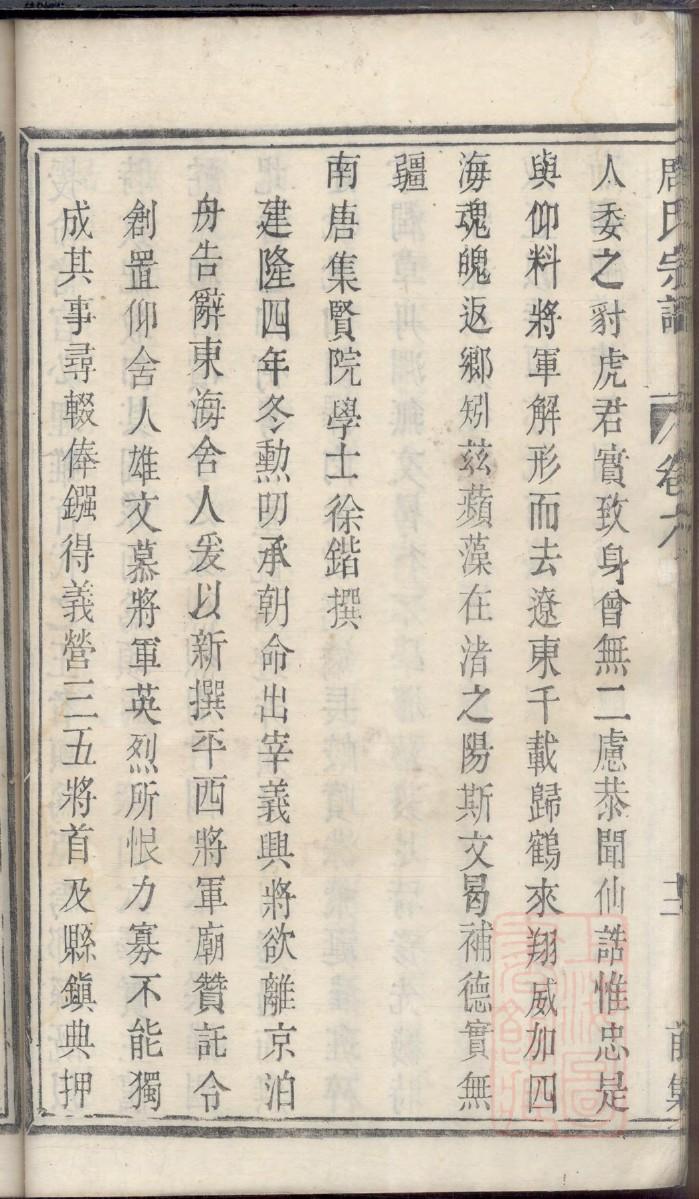 周氏宗譜 卷六 十二 前集
人委之豺虎君實致身曾無二慮恭聞仙誥惟忠是
與仰料將軍解形而去遼東千載歸鶴來翔威加四
海魂魄返鄉矧茲蘋藻在渚之陽斯文曷補德實無
疆
南唐集賢院學士徐鍇撰
建隆四年冬勲叨承朝命出宰義興將欲離京泊
舟告辭東海舍人爰以新撰平西將軍廟贊託令
創置仰舍人雄文慕將軍英烈所恨力寡不能獨
成其事尋輟俸鏹得義營三五將首及縣鎮典押